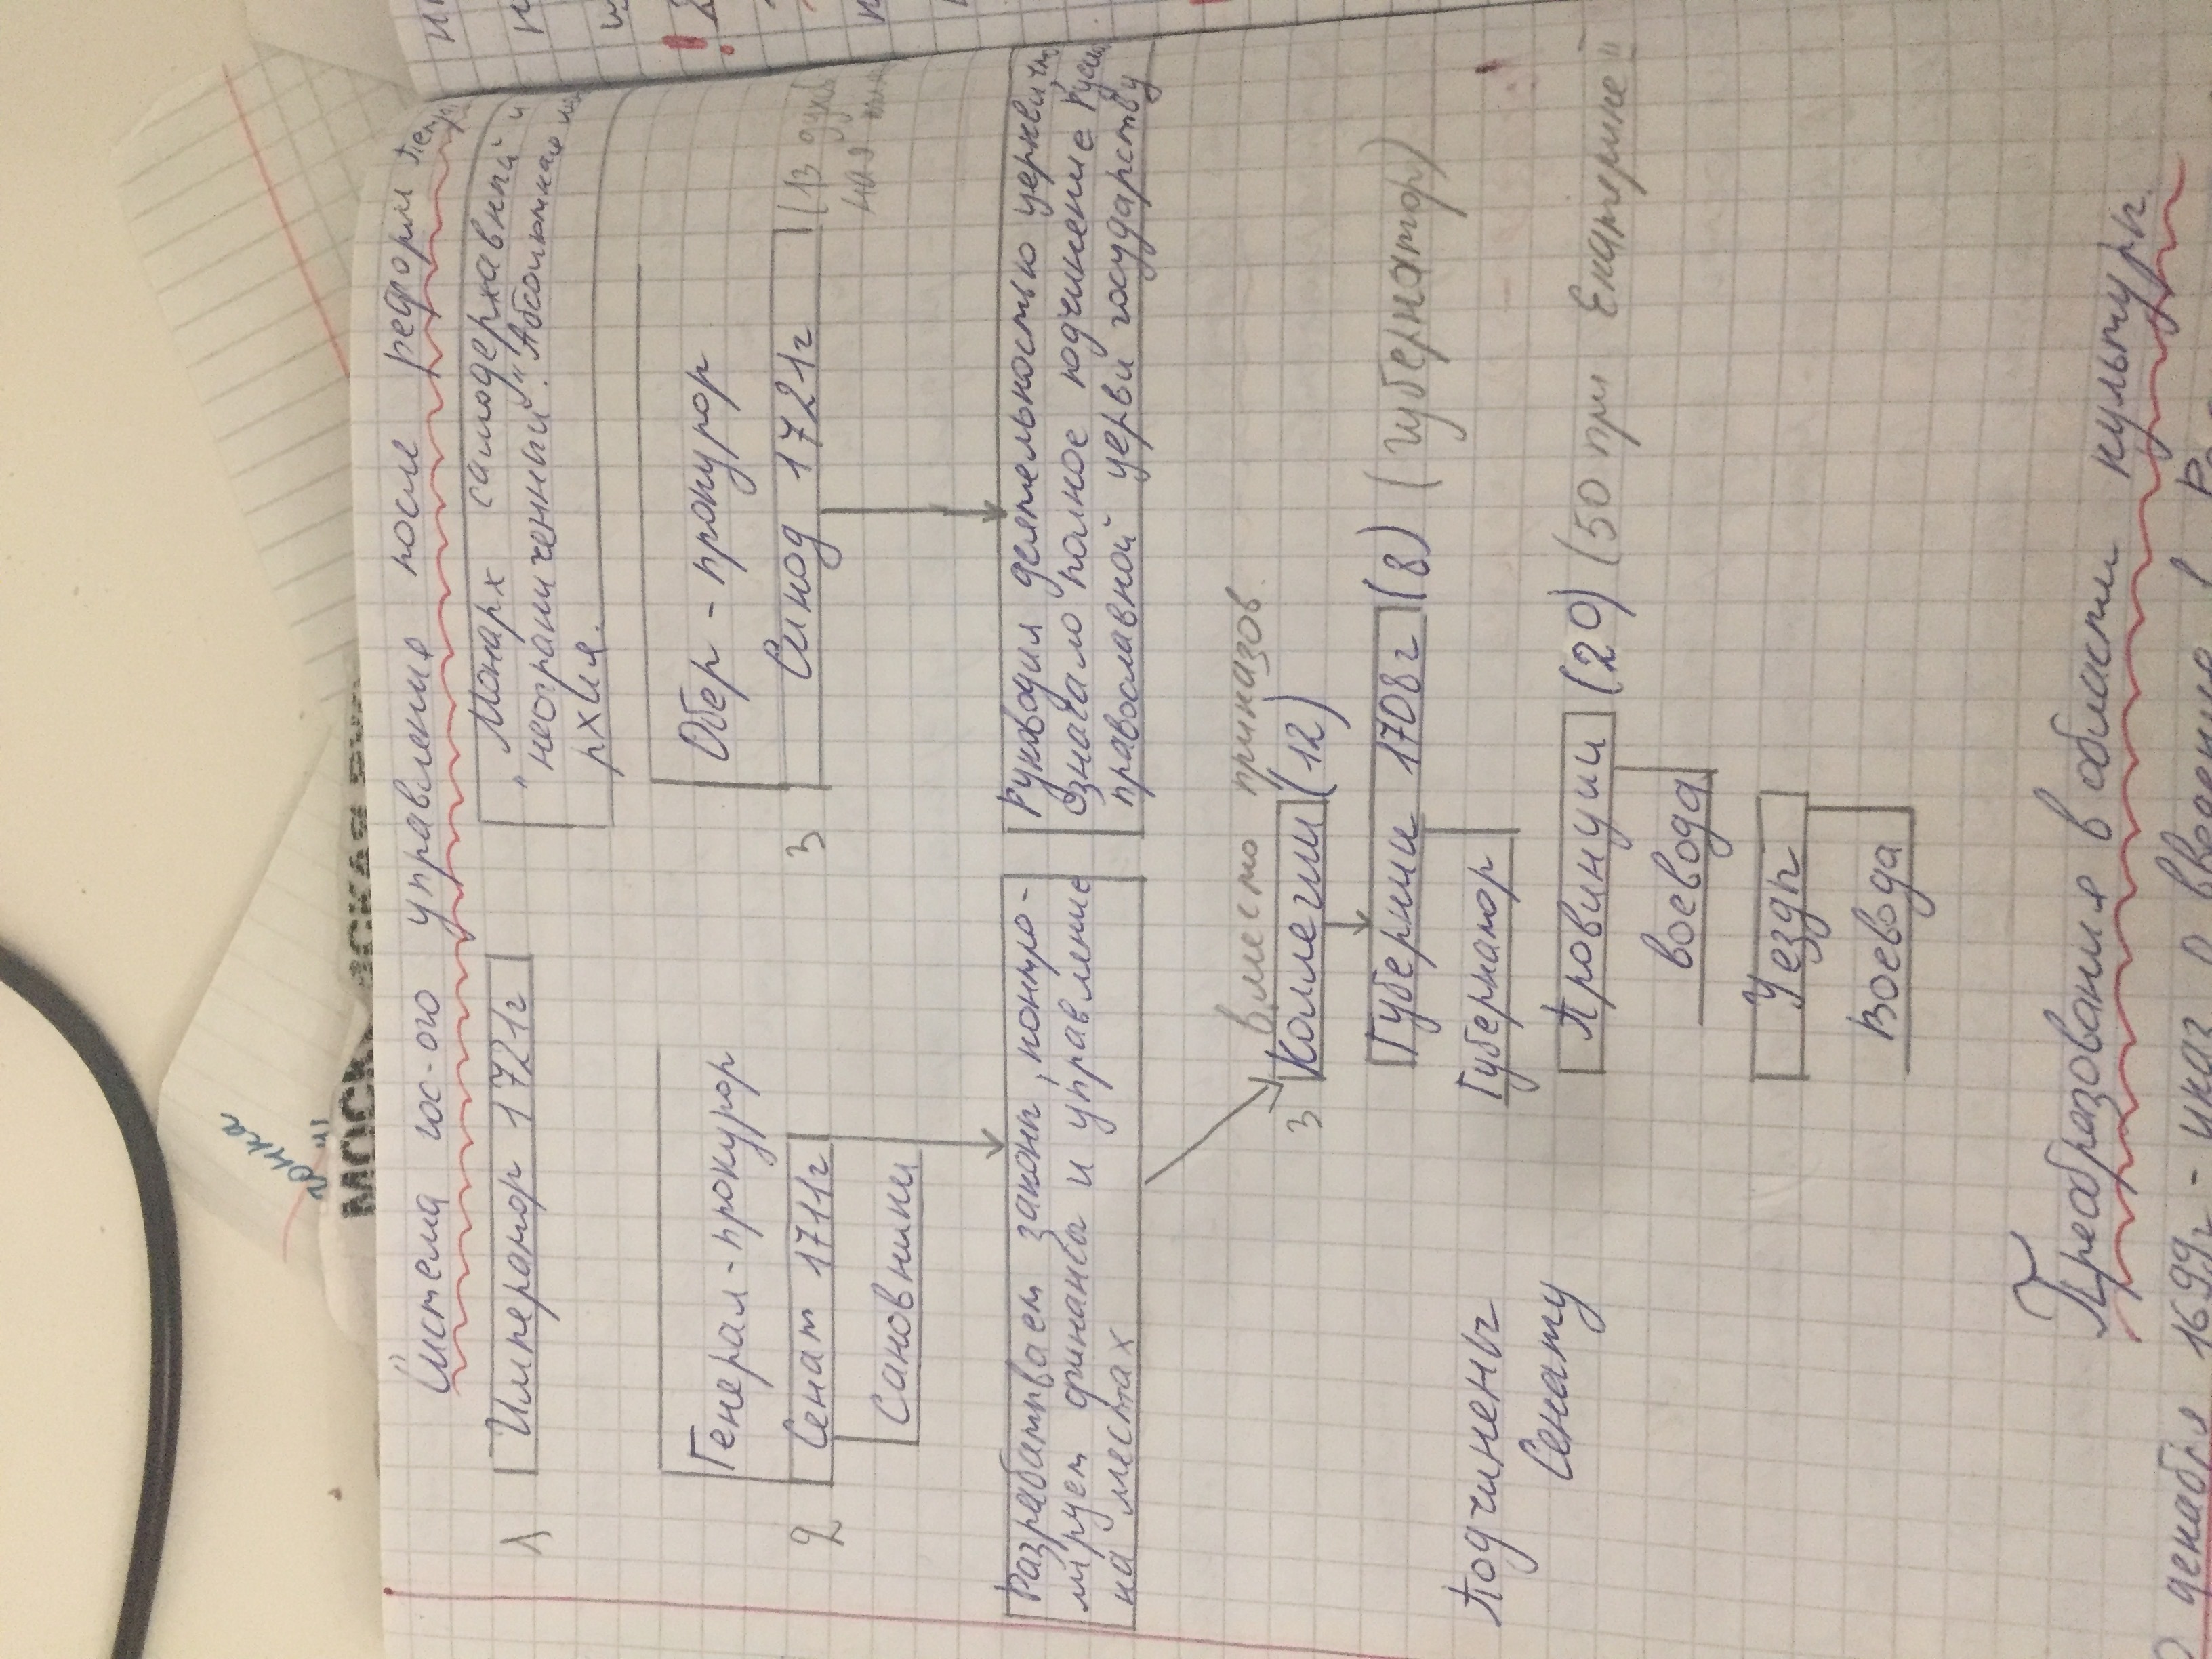 гонка
МОСК
ВСКАЯ РУС
Система гос-ого управление после реформ Петра
1 Император 1721г
Монарх самодержавный и
"неограниченный". Абсолютная мона
рхия.
Генерал-прокурор
2 Сенат 1711г
Сановники
Обер-прокурор
3 Синод 1721г
(13 духов
ная
Разрабатывает законы, контро-
лирует финансы и управление
на местах
Руководил деятельностью церкви, что
означало полное подчинение Русск
православной церви государству
вместо приказов
3 Коллегии (12)
Губернии 1708г (8) (губернатор)
Губернатор
Подчинены
Сенату
Провинции (20) (50 при Екатерине II
воевода
Уезды
Воевода
Преобразования в области культуры.
0 декабря 1699г - указ о введение в